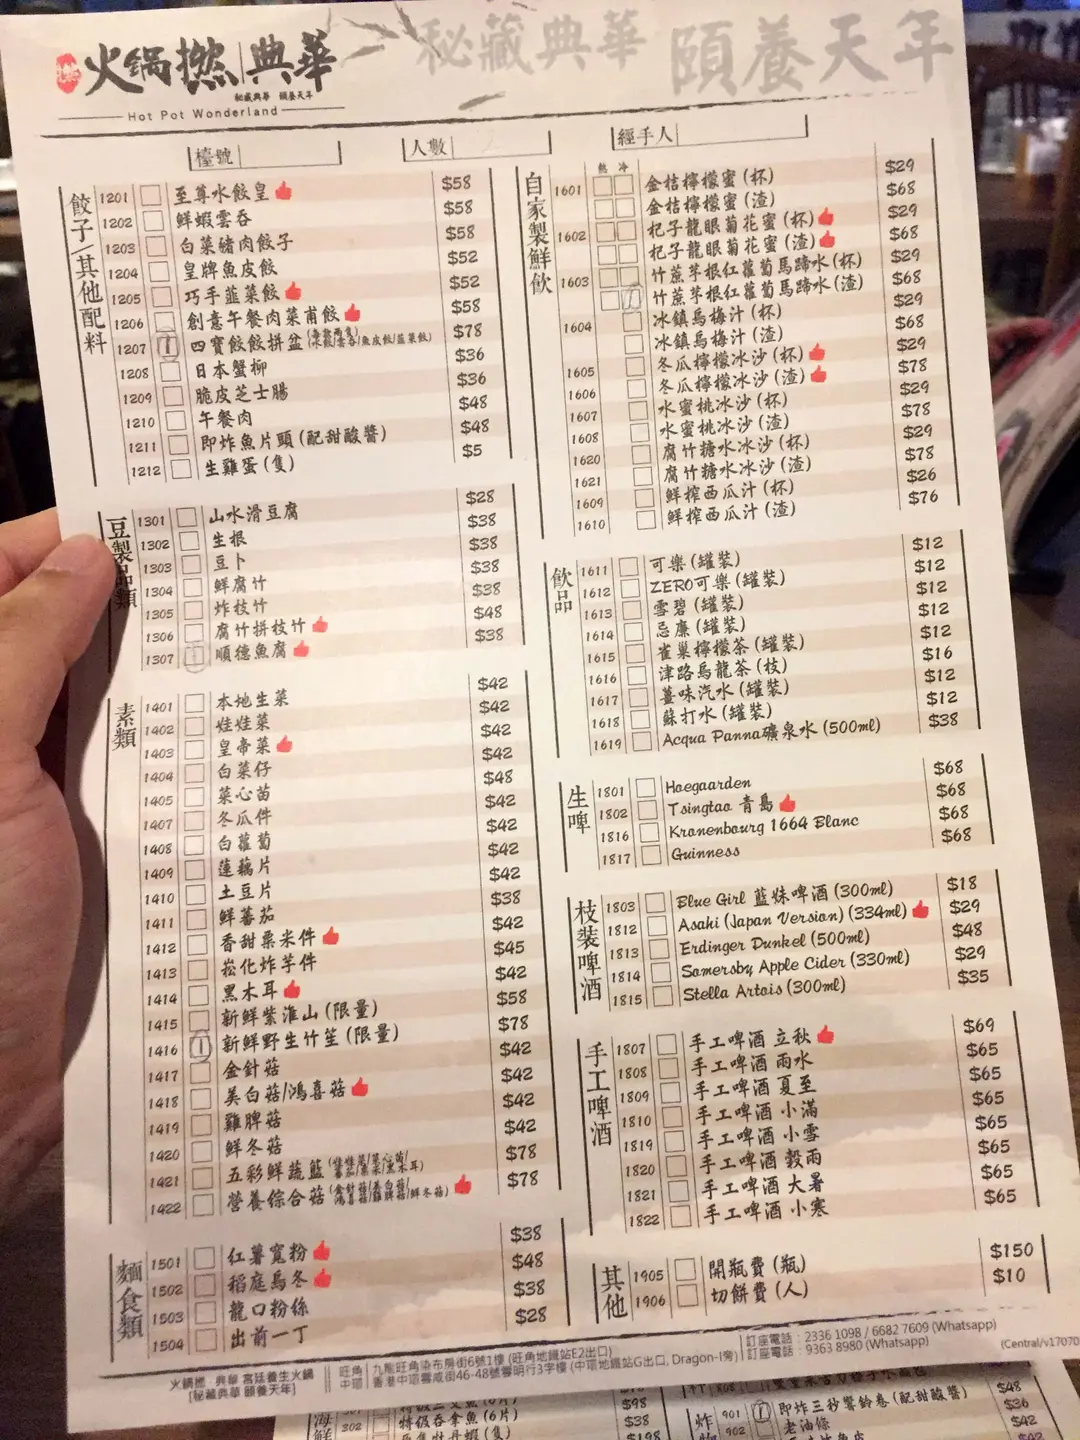 火鍋撚 典華
秘藏典華 頤養天年
Hot Pot Wonderland
秘藏典華 頤養天年
檯號
人數
經手人
餃子/其他配料
1201 至尊水餃皇 $58
1202 鮮蝦雲吞 $58
1203 白菜豬肉餃子 $58
1204 皇牌魚皮餃 $52
1205 巧手韮菜餃 $52
1206 創意午餐肉菜甫餃 $58
1207 1 四寶餃餃拼盆 $78
1208 日本蟹柳 $36
1209 脆皮芝士腸 $36
1210 午餐肉 $48
1211 即炸魚片頭 (配甜酸醬) $48
1212 生雞蛋 (隻) $5
豆製品類
1301 山水滑豆腐 $28
1302 生根 $38
1303 豆卜 $38
1304 鮮腐竹 $38
1305 炸枝竹 $38
1306 腐竹拼枝竹 $48
1307 1 順德魚腐 $38
素類
1401 本地生菜 $42
1402 娃娃菜 $42
1403 皇帝菜 $42
1404 白菜仔 $42
1405 菜心苗 $48
1407 冬瓜件 $42
1408 白蘿蔔 $42
1409 蓮藕片 $42
1410 土豆片 $42
1411 鮮蕃茄 $38
1412 香甜粟米件 $42
1413 崧化炸芋件 $45
1414 黑木耳 $42
1415 新鮮紫淮山 (限量) $58
1416 1 新鮮野生竹笙 (限量) $78
1417 金針菇 $42
1418 美白菇/鴻喜菇 $42
1419 雞脾菇 $42
1420 鮮冬菇 $42
1421 五彩鮮蔬籃 $78
1422 營養綜合菇 $78
麵食類
1501 紅薯寬粉 $38
1502 稻庭烏冬 $48
1503 龍口粉絲 $38
1504 出前一丁 $28
自家製鮮飲
熱 冷
1601 金桔檸檬蜜 (杯) $29
金桔檸檬蜜 (渣) $68
1602 杞子龍眼菊花蜜 (杯) $29
杞子龍眼菊花蜜 (渣) $68
1603 竹蔗芋根紅蘿蔔馬蹄水 (杯) $29
1 竹蔗芋根紅蘿蔔馬蹄水 (渣) $68
1604 冰鎮烏梅汁 (杯) $29
冰鎮烏梅汁 (渣) $68
1605 冬瓜檸檬冰沙 (杯) $29
1606 冬瓜檸檬冰沙 (渣) $78
1607 水蜜桃冰沙 (杯) $29
1608 水蜜桃冰沙 (渣) $78
1620 腐竹糖水冰沙 (杯) $29
1621 腐竹糖水冰沙 (渣) $78
1609 鮮榨西瓜汁 (杯) $26
1610 鮮榨西瓜汁 (渣) $76
飲品
1611 可樂 (罐裝) $12
1612 ZERO可樂 (罐裝) $12
1613 雪碧 (罐裝) $12
1614 忌廉 (罐裝) $12
1615 雀巢檸檬茶 (罐裝) $12
1616 津路烏龍茶 (枝) $16
1617 薑味汽水 (罐裝) $12
1618 蘇打水 (罐裝) $12
1619 Acqua Panna礦泉水 (500ml) $38
生啤
1801 Hoegaarden $68
1802 Tsingtao 青島 $68
1816 Kronenbourg 1664 Blanc $68
1817 Guinness $68
枝裝啤酒
1803 Blue Girl 藍妹啤酒 (300ml) $18
1812 Asahi (Japan Version) (334ml) $29
1813 Erdinger Dunkel (500ml) $48
1814 Somersby Apple Cider (330ml) $29
1815 Stella Artois (300ml) $35
手工啤酒
1807 手工啤酒 立秋 $69
1808 手工啤酒 雨水 $65
1809 手工啤酒 夏至 $65
1810 手工啤酒 小滿 $65
1819 手工啤酒 小雪 $65
1820 手工啤酒 穀雨 $65
1821 手工啤酒 大暑 $65
1822 手工啤酒 小寒 $65
其他
1905 開瓶費 (瓶) $150
1906 切餅費 (人) $10
火鍋撚 · 典華 宮廷養生火鍋
[秘藏典華 頤養天年]
旺角 九龍旺角染布房街6號1樓 (旺角地鐵站E2出口)
中環 香港中環雲咸街46-48號豐明行3字樓 (中環地鐵站G出口, Dragon-I旁)
訂座電話 : 2336 1098 / 6682 7609 (Whatsapp)
訂座電話 : 9363 8980 (Whatsapp)
(Central/v17070
海鮮
302 特級吞拿魚 (6片) $38
$98
$198
901 1 即炸三秒響鈴卷 (配甜酸醬) $48
902 老油條 $36
$42